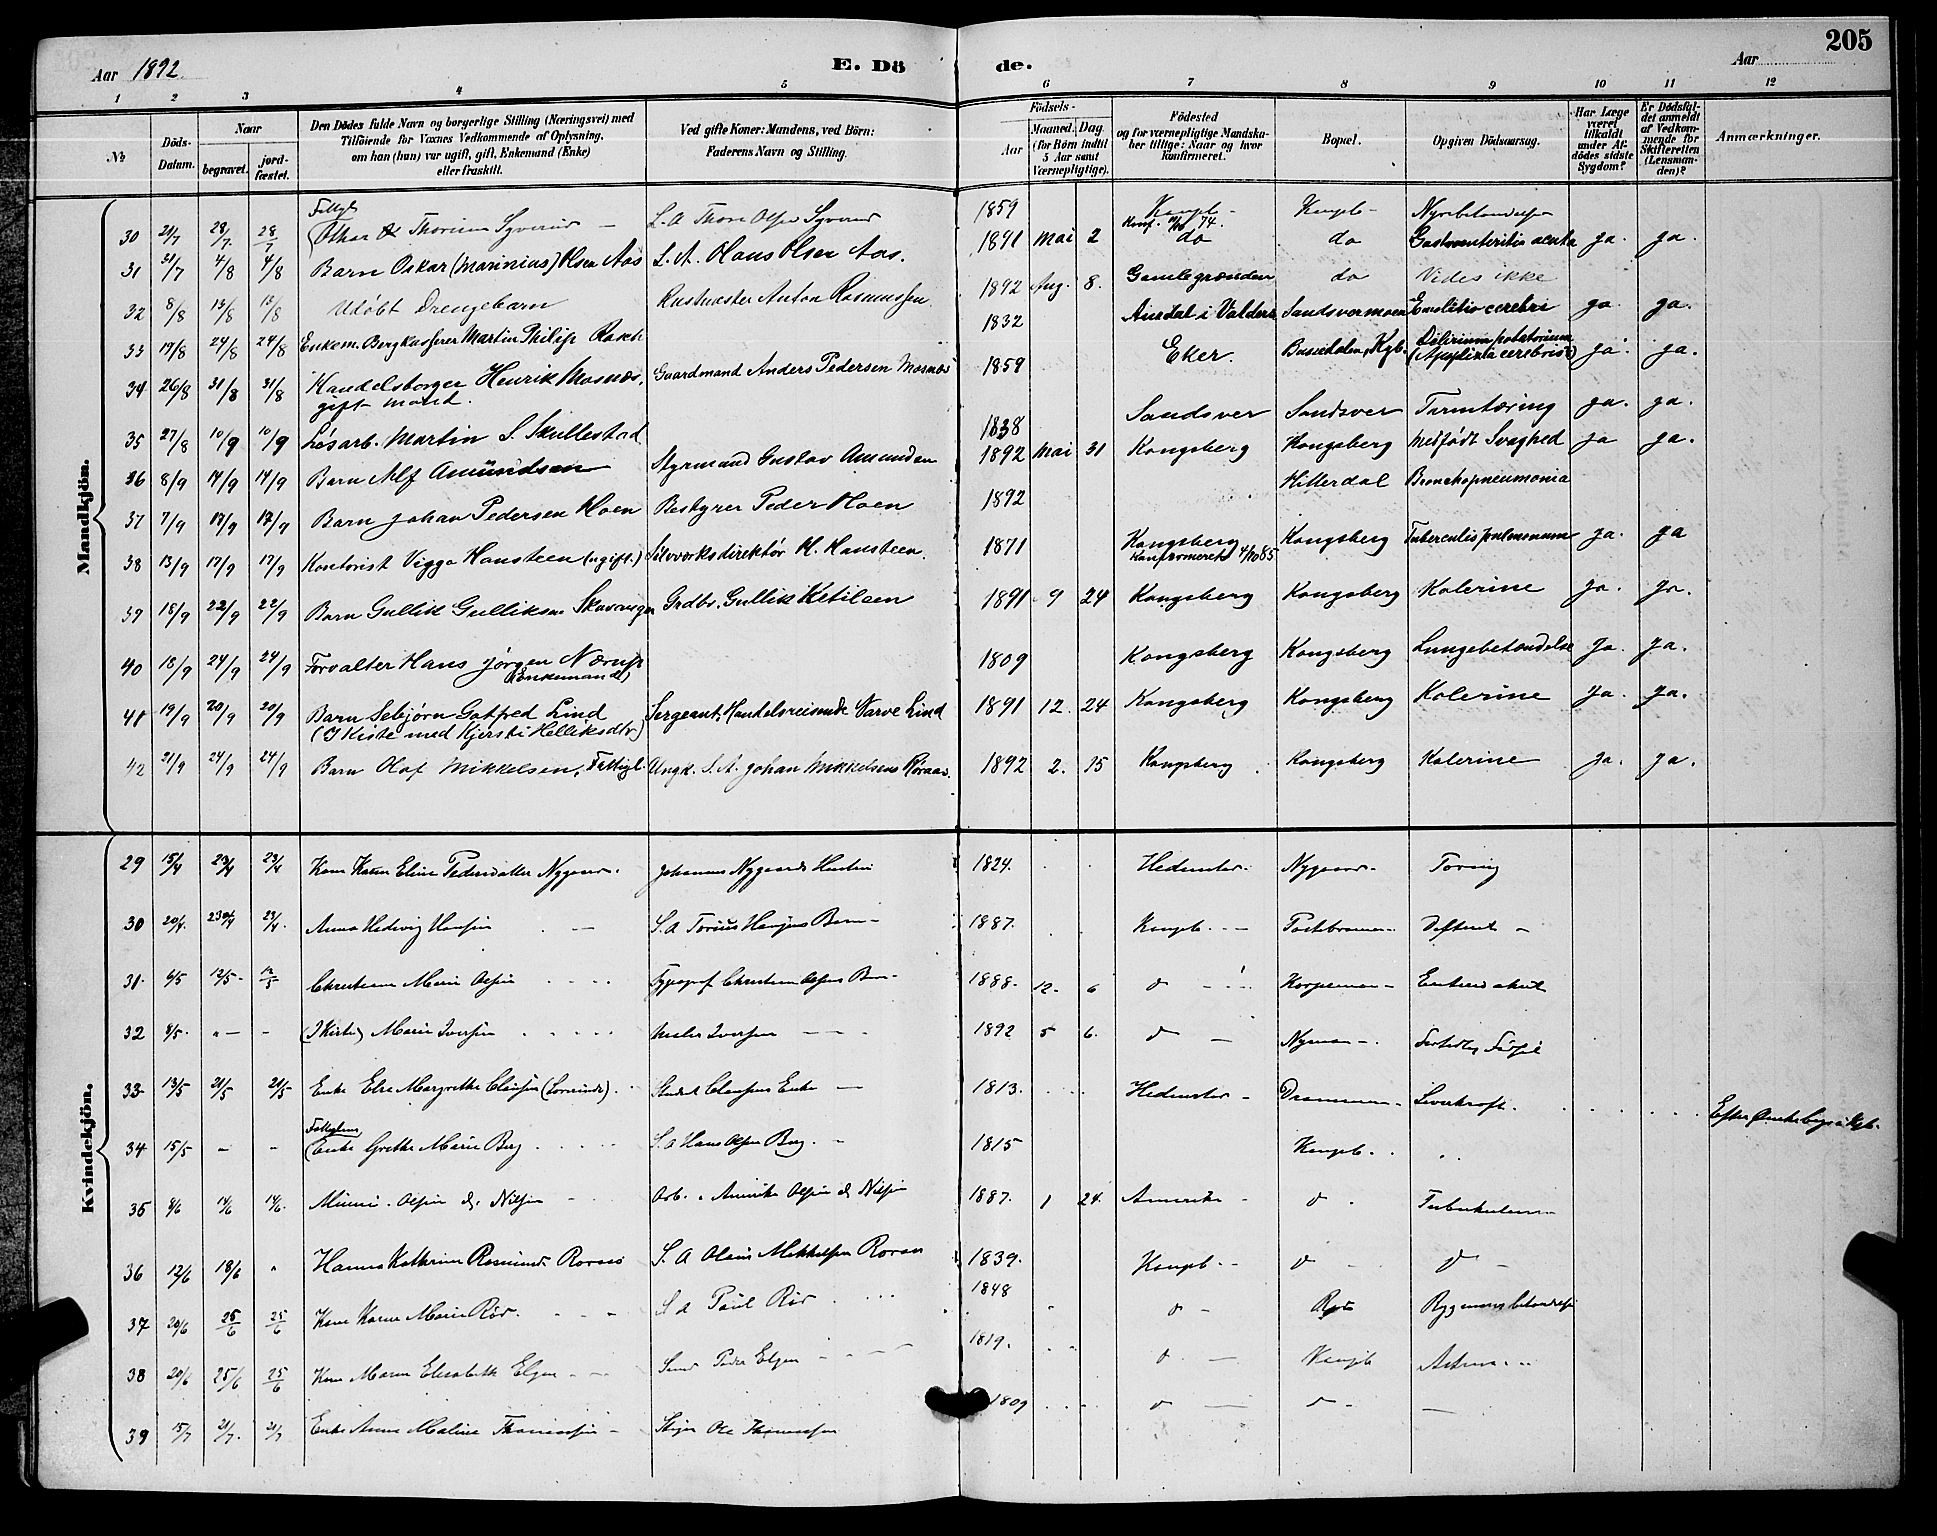 205
Aar 1892 E. Dö de. Aar
1 2 3 4 5 6 7 8 9 10 11 12
№
Döds-Datum.
Naar
begravet.
jord-fæstet.
Den Dødes fulde Navn og borgerlige Stilling (Næringsvei) med
Tilföiende for Vaxnes Vedkommende af Oplysning,
om han (hun) var ugift, gift, Enkemand (Enke)
eller fraskilt.
Ved gifte Koner: Mandens, ved Börn:
Faderens Navn og Stilling.
Födsels-
Aar
Maaned. Dag
(for Börn indtil
5 Aar samt
Værnepligtige).
Födested
og for værnepligtige Mandska-
ber tillige: Naar og hvor
konfirmeret.
Bopæl.
Opgiven Dödsaarsag.
Har Læge
været
tilkaldt
under Af-
dödes sidste
Sygdom?
Er Dödsfal-
det anmeldt
af Vedkom-
mende for
Skifteretten
(Lensman-
den)?
Anmærkninger.
Mandkjön.
30 21/7 28/7 28/7 Othar Thorsen Syverud L.A. Thore Olsen Syverud 1859 Kongsb- Kongsb- Nyrebetændelse
31 31/7 4/8 4/8 Barn Oskar (Marinius) Olsen Aas L.A. Hans Olsen Aas. 1891 Mai 2 do do Gastroenteritis acuta ja. ja.
32 8/8 13/8 13/8 Udöbt Drengebarn Rustmester Anton Rasmussen 1892 Aug. 8. Gamlegrænden do Vides ikke
33 19/8 24/8 24/8 Enkem. Bergkasserer Martin Philip Rasch 1832 Aurdal i Valders Sandsvermoen Emolitio cerebri ja. ja.
34 26/8 31/8 31/8 Handelsborger Henrik Mosnæs, Gaardmand Anders Pedersen Mosnæs 1859 Eker. Kgb. Delirium potatorium ja. ja.
gift mand.
35 27/8 10/9 10/9 Løsarb. Martin S. Skullestad 1838 Sandsver Sandsver Tarmtæring ja. ja.
36 8/9 14/9 14/9 Barn Alf Amundsen Styrmand Gustav Amundsen 1892 Mai 31 Kongsberg Kongsberg Medfødt Svaghed ja ja.
37 7/9 17/9 17/9 Barn Johan Pedersen Hoen Bestyrer Peder Hoen 1892 Hitterdal Bronchopneumonia
38 13/9 17/9 17/9 Kontorist Viggo Hansteen (ugift.) Sölvverksdirektör H. Hansteen. 1871 Kongsberg Kongsberg Tuberculis pulmonum ja. ja
Konfirmeret 4/10 85
39 18/9 22/9 22/9 Barn Gullik Gulliksen Grdbr. Gullik Ketilsen 1891 9 24 Kongsberg Kongsberg Kolerine ja. ja.
40 18/9 24/9 24/9 Forvalter Hans Jörgen Nærup 1809 Kongsberg Kongsberg Lungebetændelse ja. ja.
(Enkemand)
41 19/9 20/9 20/9 Barn Sebjörn Gotfred Lind Sergeant, Handelsreisende Narve Lind 1891 12. 24 Kongsberg Kongsberg Kolerine ja. ja.
(I Kiste med Kjersti Helliksdtr)
42 21/9 24/9 24/9 Barn Olaf Mikkelsen, Fattigl. Ungk. S.A. Johan Mikkelsens Röraas. 1892 2. 15 Kongsberg Kongsberg Kolerine ja. ja.
Kvindekjön.
29 15/4 23/4 23/4 Kone Karen Eline Pedersdatter Nygaard. Johannes Nygaards Hustru 1824. Hedenstad. Nygaard- Tæring
30 20/4 23/4 23/4. Anna Hedvig Hansen S.A. Hansens Barn- 1887. Kongsb. Difterit
31. 6/5 12/5- 12/5 Christiane Marie Olsen Typograf Christian Olsens Barn- 1888. 12. 6 d
32 8/5. "- - (I Kiste) Marie Iversen Iversen 1892 5 6. d For tidlig Födsel
33- 13/5 21/5 21/5 Enke Else Margrethe Clausen Clausens Enke 1813. Hedenstad - Drammen- Leverkræft.
34 15/5 - - Enke Grethe Marie Berg S.A. Hans Olsen Berg. 1815 Kongsb.
35 8/6 14/6 14/6. Minni Olsen d. Nilsen Arb. i Amerika Olsen d. Nilsen 1887. 1 24. Amerika - d Tuberkulose
36 12/6 18/6 " Hanna Kathrine Röraas S.A. Olaus Mikkelsen Röraas 1839. Kongsb. - d d
37 20/6 25/6 25/6 Kone Karen Marie Rör. S.A. Paul Rör 1848 d Rygmarvsbetændelse
38 20/6 25/6 25/6 Kone Maren Elisabeth Elgen Peder Elgen 1819. d Kongsb Astma
39 15/7 21/7. 21/7 Enke Anne Maline Thomassen - Stiger Ole Thomassen 1809 d d -